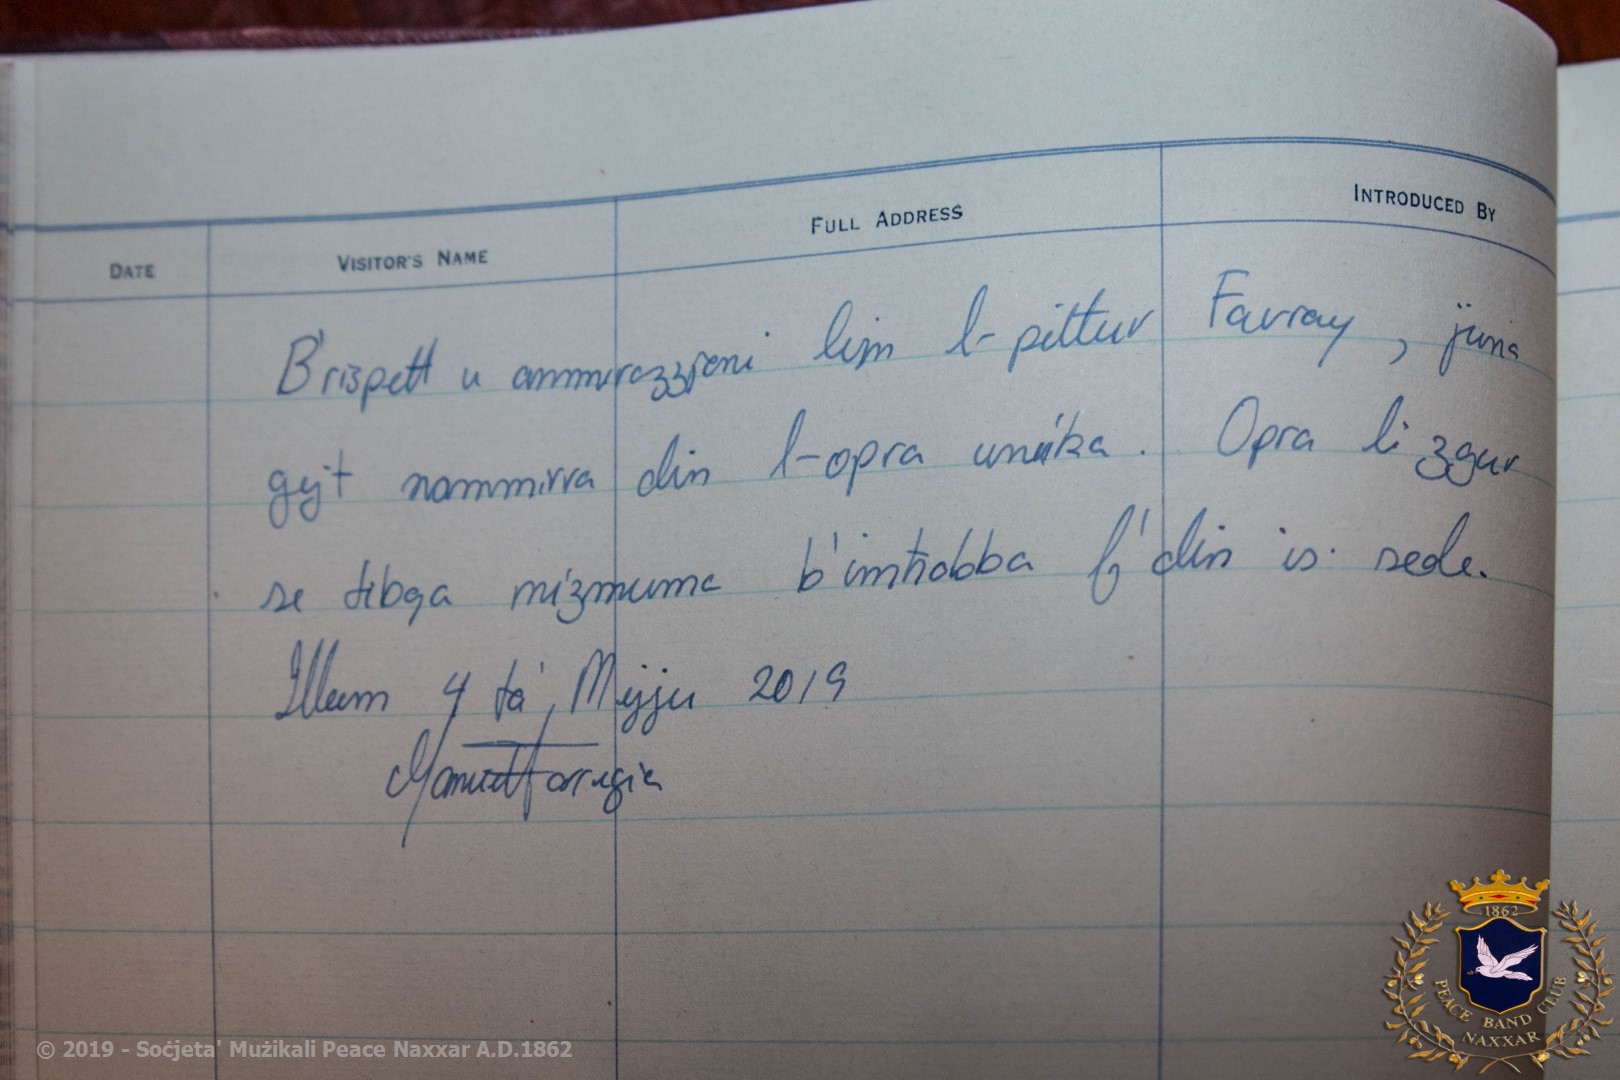 DATE VISITOR'S NAME FULL ADDRESS INTRODUCED BY
B'rispett u ammirazzjoni lejn l-pittur Favray, jiena
gejt nammirra din l-opra unika. Opra li zgur
se tibqa miżmuma b'imħabba f'din is-sede.
Illum 4 ta' Mejju 2019
© 2019 - Soċjeta' Mużikali Peace Naxxar A.D.1862
1862
PEACE BAND CLUB
NAXXAR